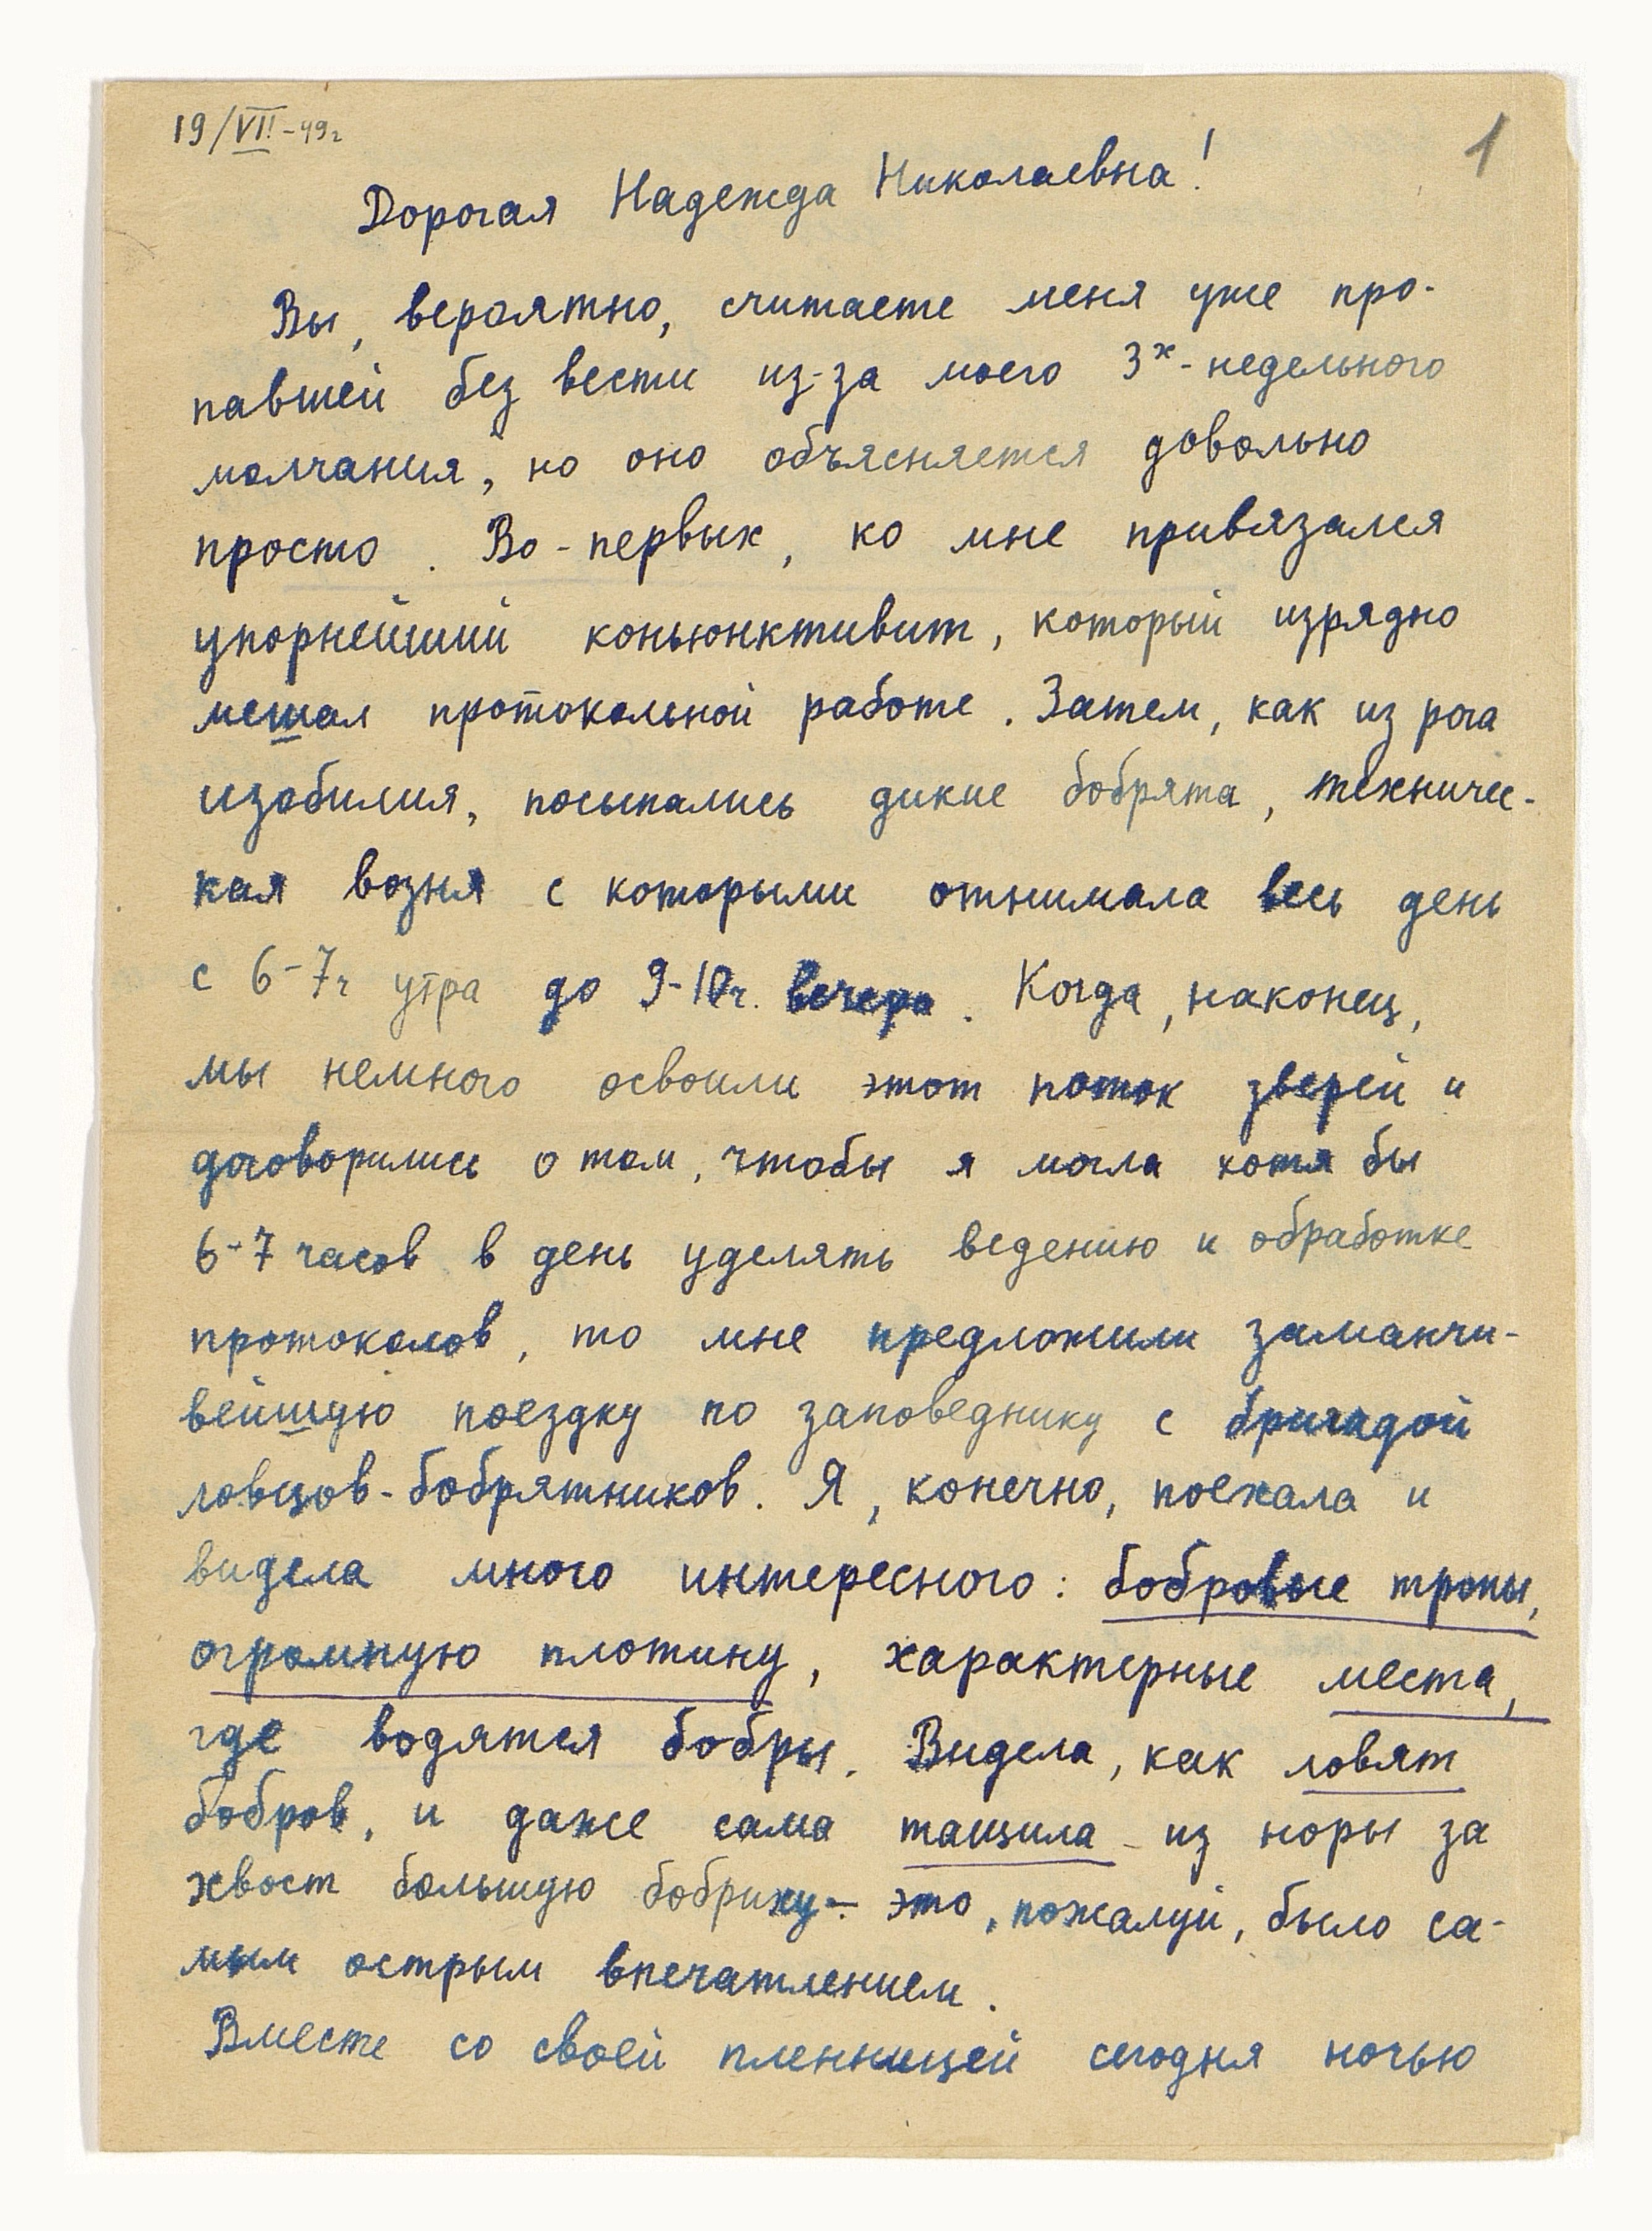 19/VII-49г
1
Дорогая Надежда Николаевна!
Вы, вероятно, считаете меня уже про-
павшей без вести из-за моего 3х-недельного
молчания, но оно объясняется довольно
просто. Во-первых, ко мне привязался
упорнейший коньюнктивит, который изрядно
мешал протокольной работе. Затем, как из рога
изобилия, посыпались дикие бобрята, техничес-
кая возня с которыми отнимала весь день
с 6-7ч утра до 9-10ч. вечера. Когда, наконец,
мы немного освоили этот поток зверей и
договорились о том, чтобы я могла хотя бы
6-7 часов в день уделять ведению и обработке
протоколов, то мне предложили заманчи-
вейшую поездку по заповеднику с бригадой
ловцов-бобрятников. Я, конечно, поехала и
видела много интересного: бобровые тропы,
огромную плотину, характерные места,
где водятся бобры. Видела, как ловят
бобров, и даже сама тащила - из норы за
хвост большую бобриху - это, пожалуй, было са-
мым острым впечатлением.
Вместе со своей пленницей сегодня ночью